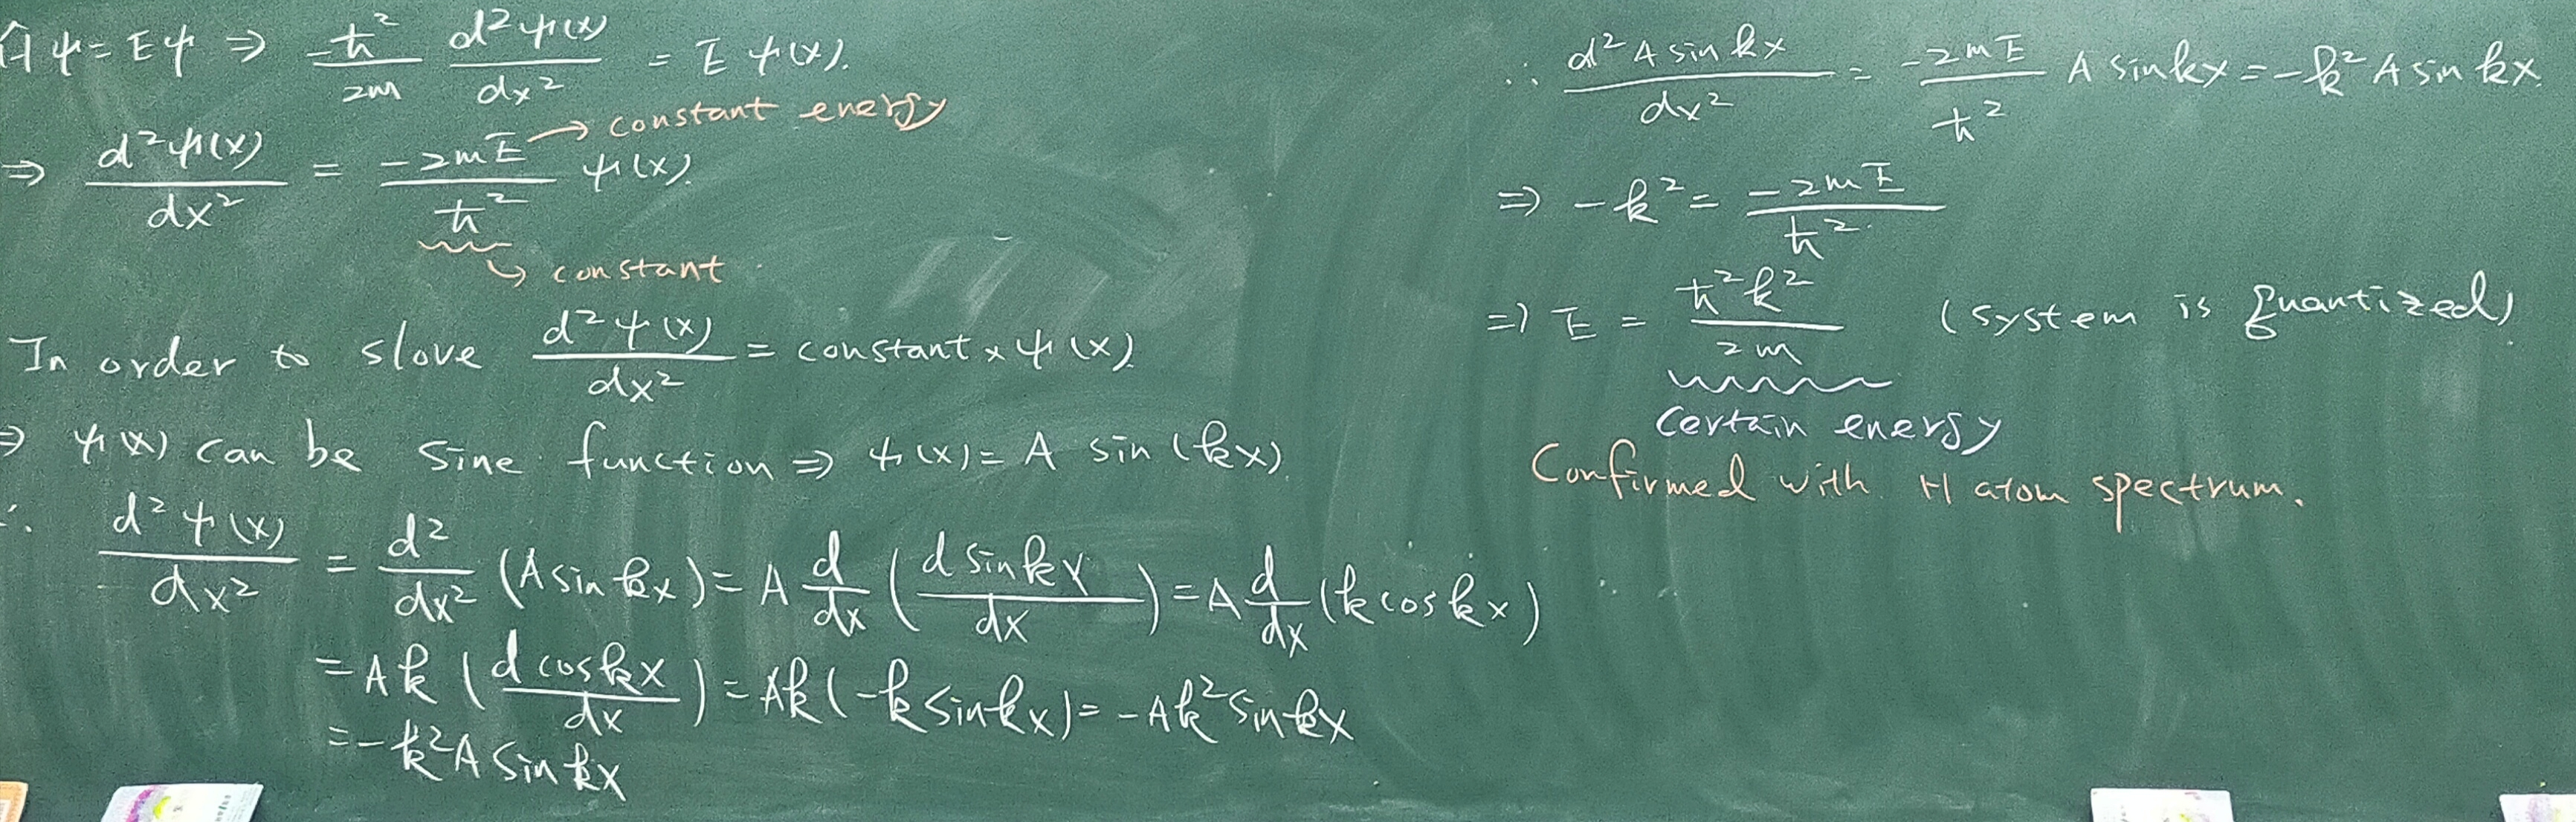 Ĥψ = Eψ ⇒ -ħ²/2m d²ψ(x)/dx² = E ψ(x).
⇒ d²ψ(x)/dx² = -2mE/ħ² ψ(x).
→ constant energy
↪ constant
In order to slove d²ψ(x)/dx² = constant × ψ(x)
⇒ ψ(x) can be sine function ⇒ ψ(x) = A sin(kx)
∴ d²ψ(x)/dx² = d²/dx² (A sin kx) = A d/dx (d sin kx/dx) = A d/dx (k cos kx)
= Ak (d cos kx/dx) = Ak(-k sin kx) = -Ak² sin kx
= -k² A sin kx
∴ d² A sin kx/dx² = -2mE/ħ² A sin kx = -k² A sin kx.
⇒ -k² = -2mE/ħ²
⇒ E = ħ²k²/2m (system is quantized)
Certain energy
Confirmed with H atom spectrum.